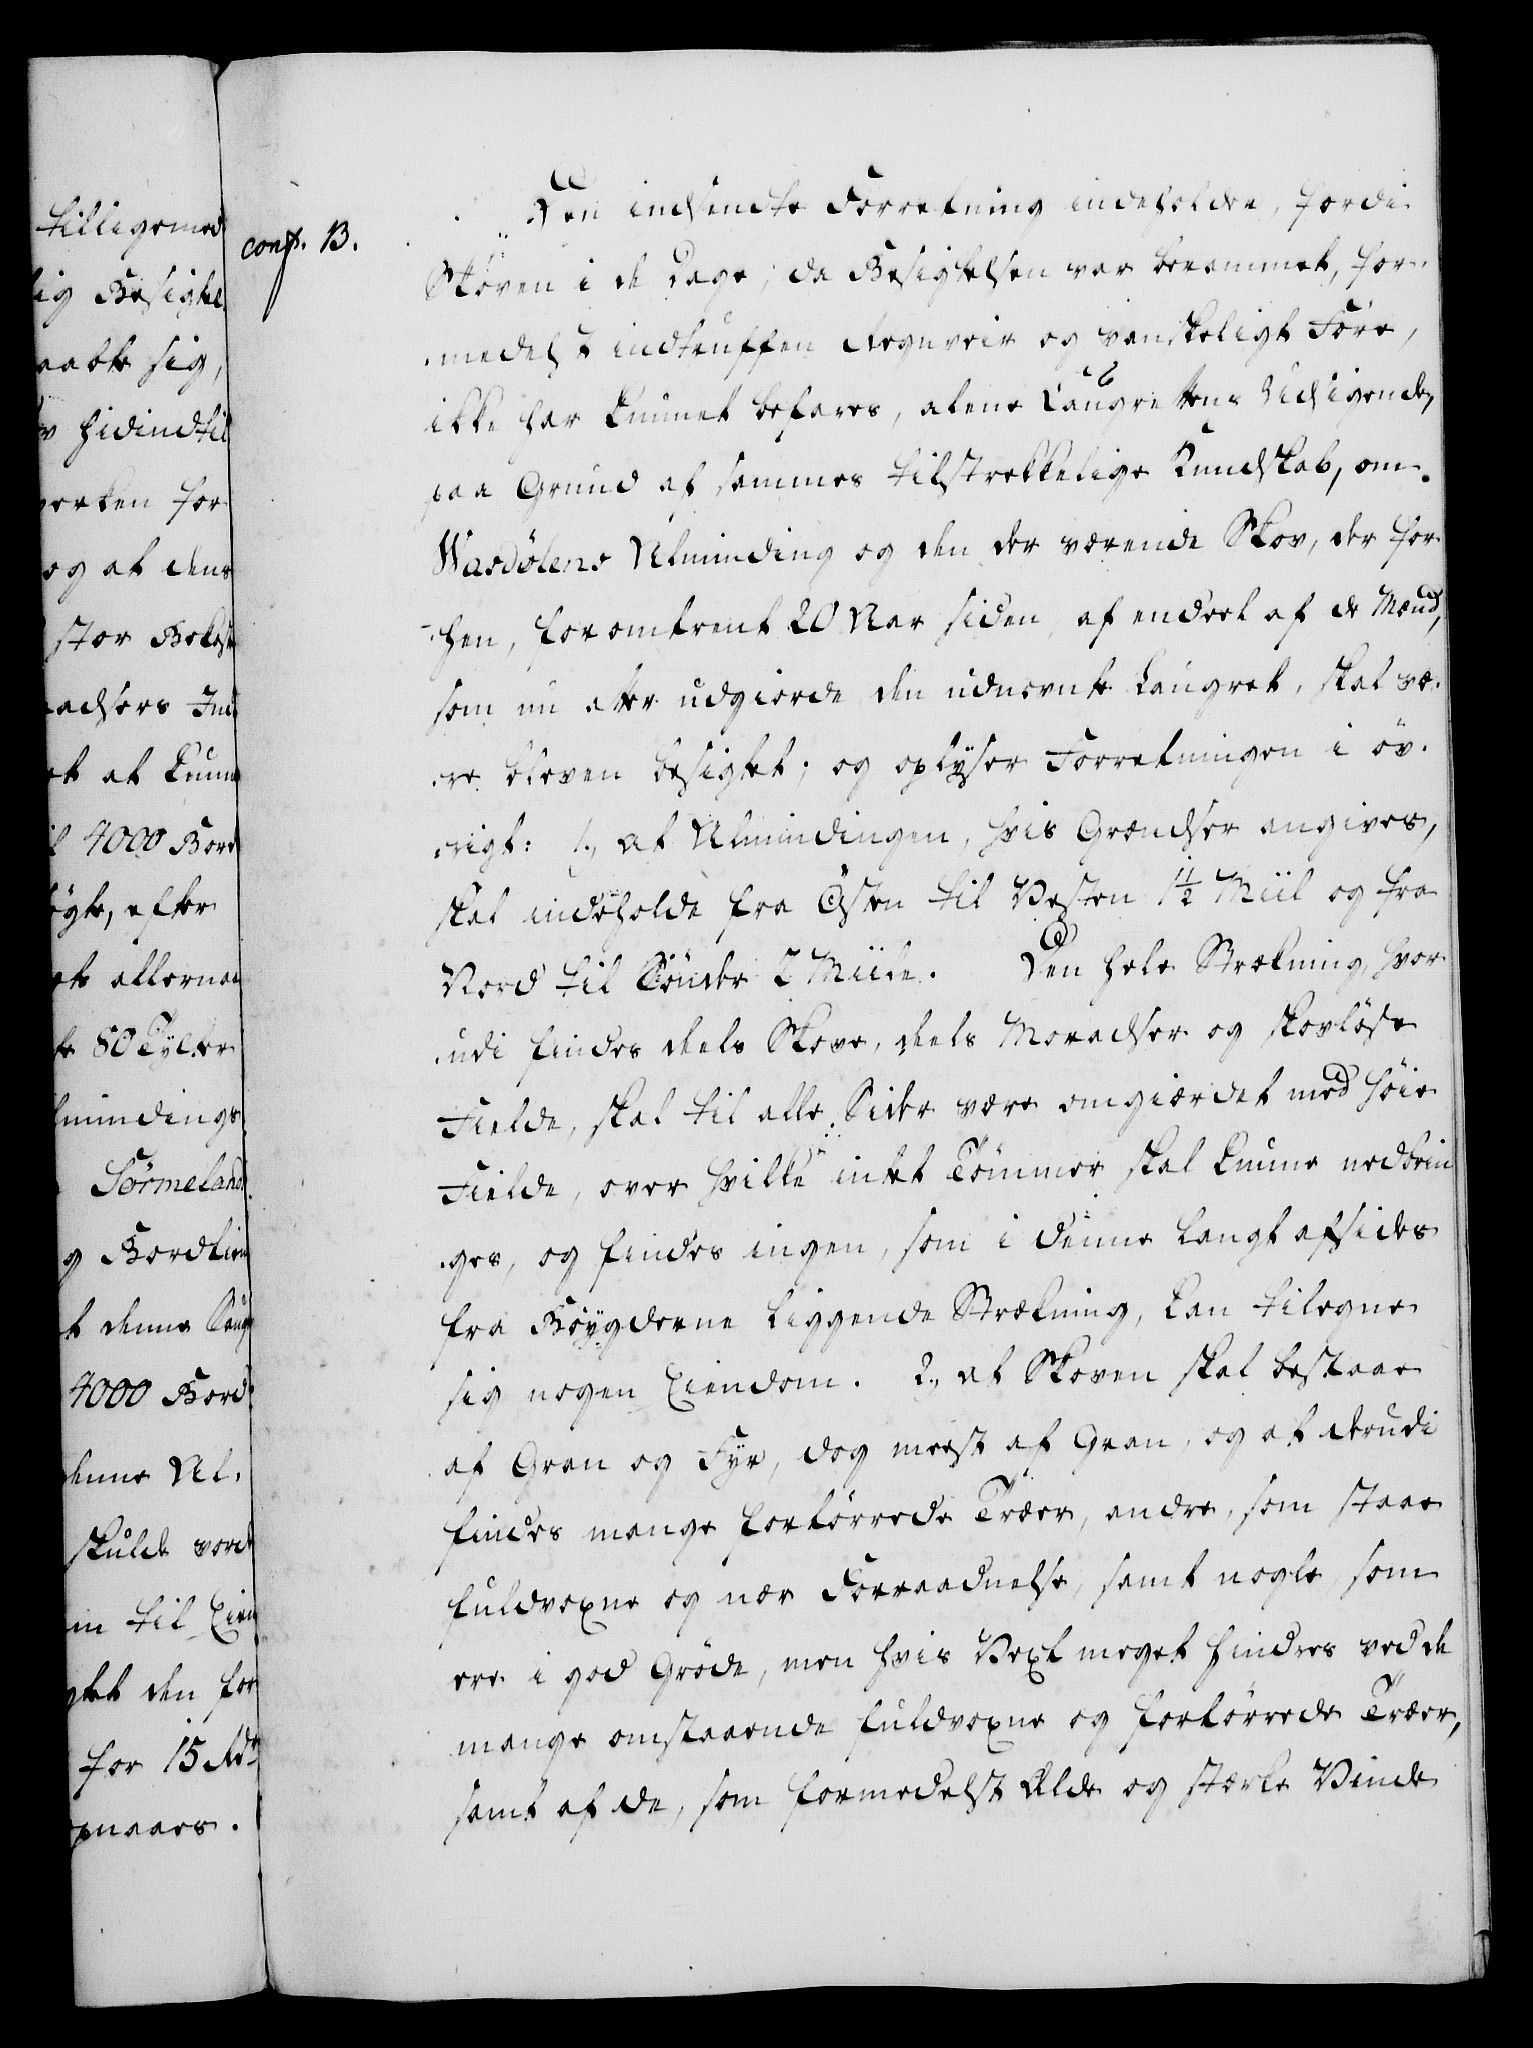 tilligemed
lig Besigtel
aabte sig,
hidindtil
verken for
og at dens
stor Bekost
adsers Ind
et at kunne
il 4000 Bord
öyte, efter
ets allernaa
te 80 Tylter
lmindings
Sørmeland
g Bordtien
t denne Laug
4000 Bord
denne Al-
skulde vorde
in til Eien
gtet den for
for 15 Rdr
opnaaes.
conf. B.
Den indsendte Forretning indeholder, fordi
Skoven i de Dage, da Besigtelsen var berammet, for-
medelst indtruffen Regnveir og vanskeligt Före,
ikke har kunnet befares, alene Laugrettens Udsigende,
paa Grund af sammes tilstrekkelige Kundskab, om
Wasdölens Alminding og den der værende Skov, der for
hen, for omtrent 20 Aar siden, af endeel af de Mænd,
som nu atter udgiorde den udnevnte Laugret, skal væ-
re bleven besigtet; og oplyser Forretningen i öv-
rigt: 1., at Almindingen, hvis Grændser angives,
skal indeholde fra Østen til Vesten 1 1/2 Miil og fra
Nord til Sönder 2 Miile. Den hele Strækning, hvor
udi findes deels Skove, deels Moradser og skovlöse
Fielde, skal til alle Sider være omgiærdet med höie
Fielde, over hvilke intet Tömmer skal kunne nedbrin
ges, og findes ingen, som i denne langt afsides
fra Böygderne liggende Strækning, kan tilegne
sig nogen Eiendom. 2., at Skoven skal bestaae
af Gran og Fyr, dog meest af Gran, og at derudi
findes mange fortörrede Træer, andre, som staae
fuldvoxne og nær Forraadnelse, samt nogle, som
ere i god Gröde, men hvis Vext meget hindres ved de
mange omstaaende fuldvoxne og fortörrede Træer,
samt af de, som formedelst Ælde og stærke Vinde